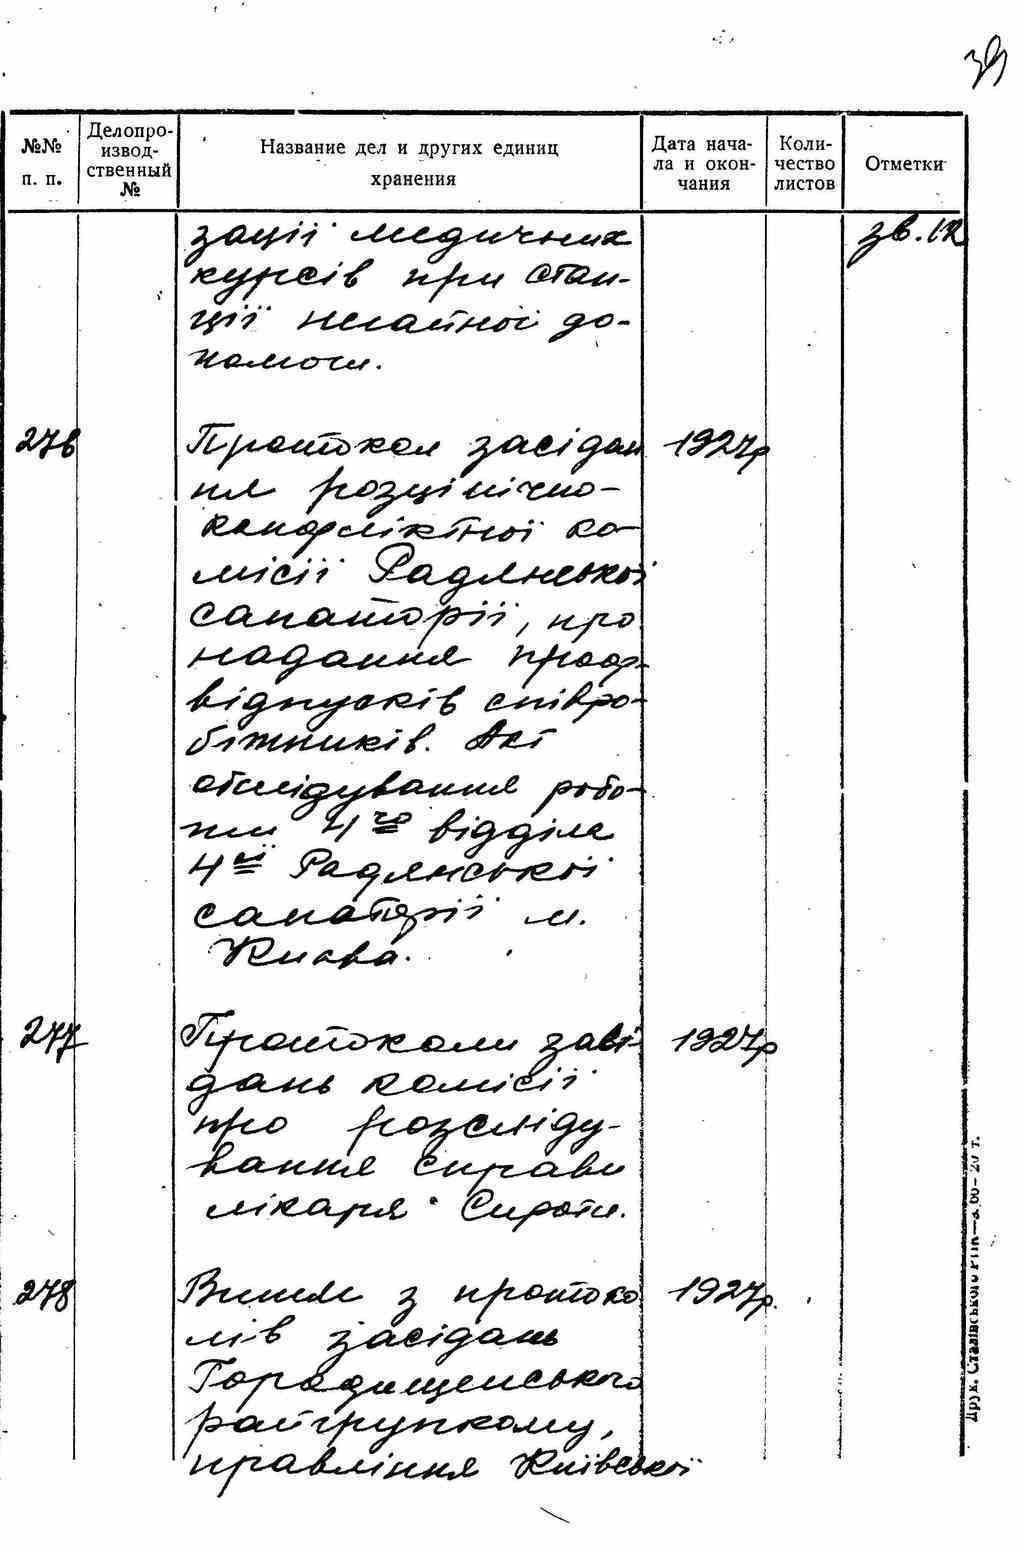 39
№№ п. п.
Делопро-
извод-
ственный
№
Название дел и других единиц
хранения
Дата нача-
ла и окон-
чания
Коли-
чество
листов
Отметки
зації медичних
курсів при стан-
ції негайної до-
помоги.
276 Протокол засідан 1927р
ня розцінічно-
конфліктної ко-
місії Радянської
санаторії, про
надання проф-
відпусків співро-
бітників. Акт
обслідування робо-
ти 4го відділа
4ої Радянської
санаторії м.
Києва.
277 Протоколи засі- 1927р
дань комісії
про розсліду-
вання справи
лікаря Сироти.
278 Витяг з протоко 1927р.
лів засідань
Городищенського
райгрупкому,
правління Київської